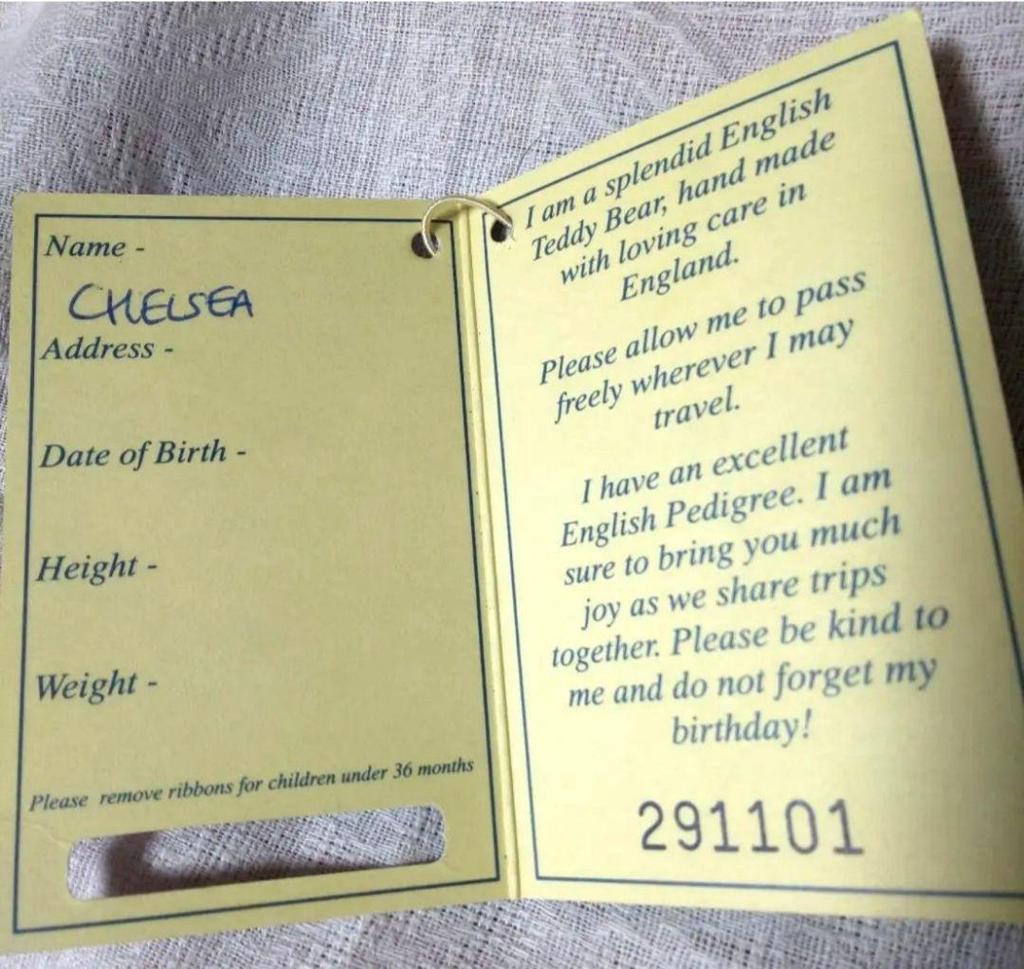 Name -
CHELSEA
Address -
Date of Birth -
Height -
Weight -
Please remove ribbons for children under 36 months
I am a splendid English
Teddy Bear, hand made
with loving care in
England.
Please allow me to pass
freely wherever I may
travel.
I have an excellent
English Pedigree. I am
sure to bring you much
joy as we share trips
together. Please be kind to
me and do not forget my
birthday!
291101